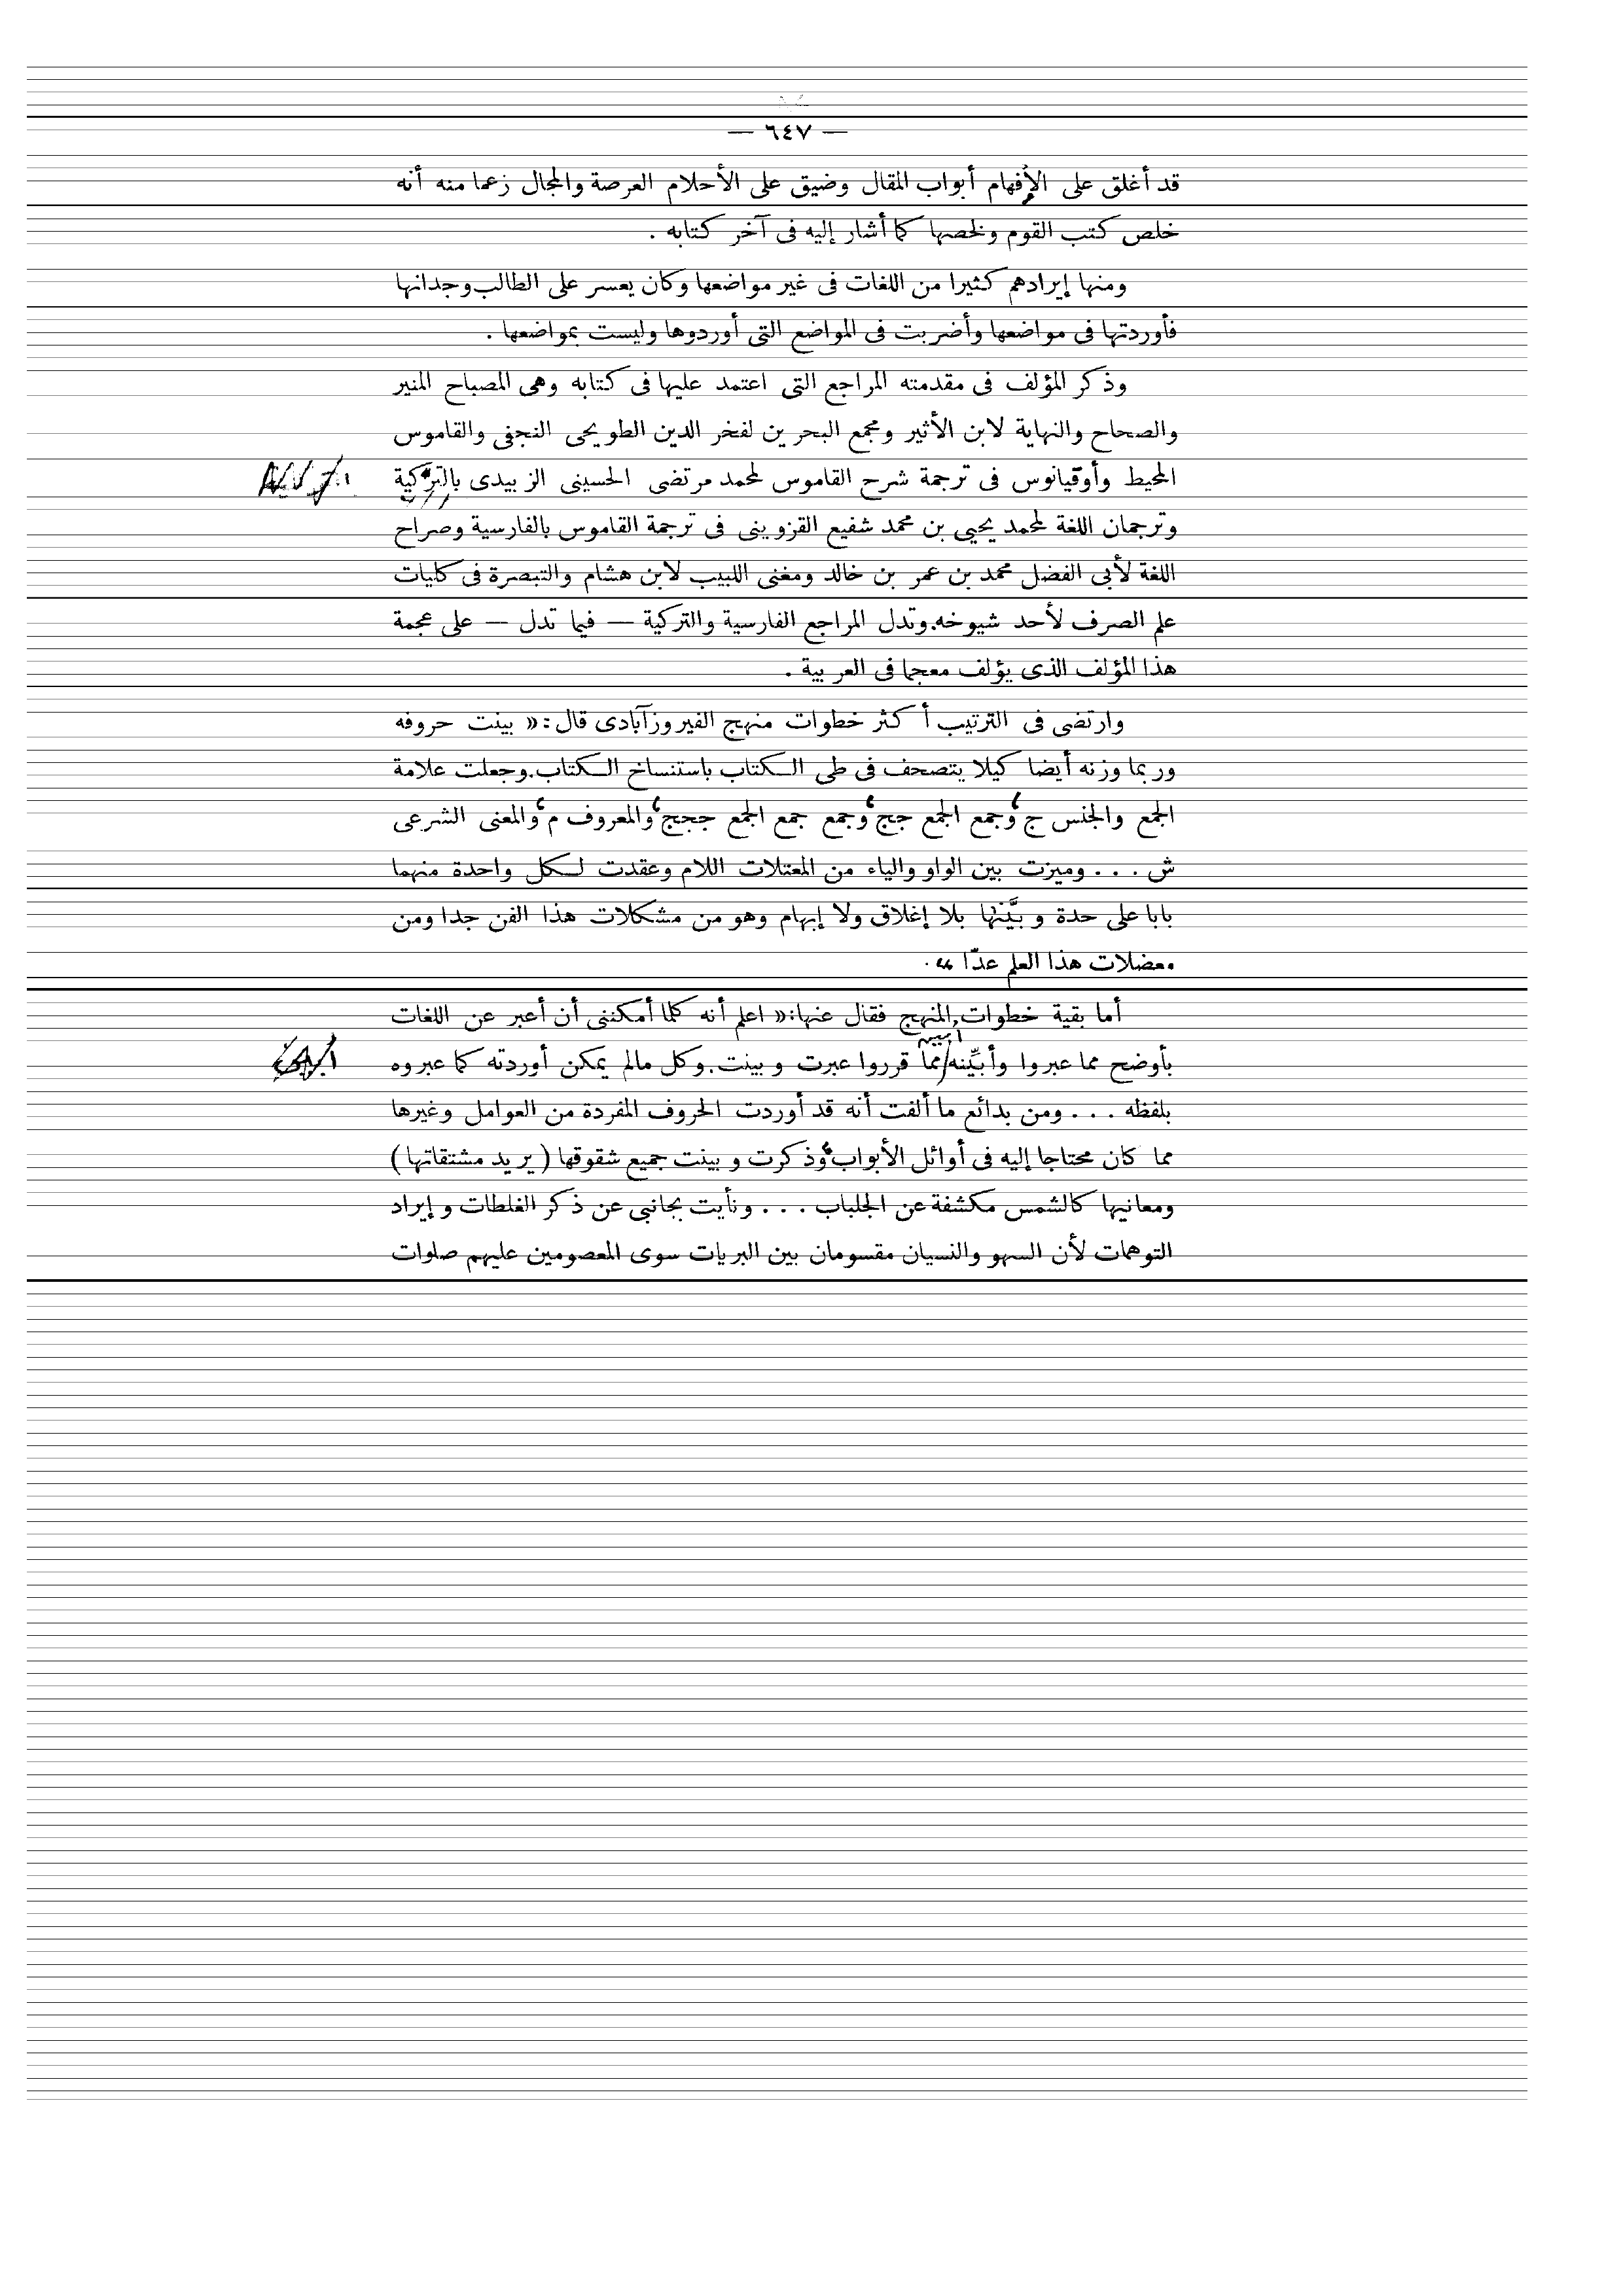 — ٦٤٧ —
قد أغلق على الأفهام أبواب المقال وضيق على الأحلام العرصة والمجال زعما منه أنه
خلص كتب القوم ولخصها كما أشار إليه فى آخر كتابه .
ومنها إيرادهم كثيرا من اللغات فى غير مواضعها وكان يعسر على الطالب وجدانها
فأوردتها فى مواضعها وأضربت فى المواضع التى أوردوها وليست بمواضعها .
وذكر المؤلف فى مقدمته المراجع التى اعتمد عليها فى كتابه وهى المصباح المنير
والصحاح والنهاية لابن الأثير ومجمع البحرين لفخر الدين الطويحى النجفى والقاموس
المحيط وأوقيانوس فى ترجمة شرح القاموس لمحمد مرتضى الحسينى الزبيدى بالتركية
وترجمان اللغة لمحمد يحيى بن محمد شفيع القزوينى فى ترجمة القاموس بالفارسية وصراح
اللغة لأبى الفضل محمد بن عمر بن خالد ومغنى اللبيب لابن هشام والتبصرة فى كليات
علم الصرف لأحد شيوخه. وتدل المراجع الفارسية والتركية — فيما تدل — على عجمة
هذا المؤلف الذى يؤلف معجما فى العربية .
وارتضى فى الترتيب أكثر خطوات منهج الفيروزآبادى قال : « بينت حروفه
وربما وزنه أيضا كيلا يتصحف فى طى الكتاب باستنساخ الكتاب. وجعلت علامة
الجمع والجنس ج، وجمع الجمع جج، وجمع جمع الجمع ججج، والمعروف م، والمعنى الشرعى
ش . . . وميزت بين الواو والياء من المعتلات اللام وعقدت لكل واحدة منهما
بابا على حدة وبيَّنتها بلا إغلاق ولا إبهام وهو من مشكلات هذا الفن جدا ومن
معضلات هذا العلم عدّا » .
أما بقية خطوات المنهج فقال عنها : « اعلم أنه كلما أمكننى أن أعبر عن اللغات
بأوضح مما عبروا وأبيِّنه مما قرروا عبرت وبينت. وكل مالم يمكن أوردته كما عبروه
بلفظه . . . ومن بدائع ما ألفت أنه قد أوردت الحروف المفردة من العوامل وغيرها
مما كان محتاجا إليه فى أوائل الأبواب، وذكرت وبينت جميع شقوقها ( يريد مشتقاتها )
ومعانيها كالشمس مكشفة عن الجلباب . . . ونأيت بجانبى عن ذكر الغلطات وإيراد
التوهمات لأن السهو والنسيان مقسومان بين البريات سوى المعصومين عليهم صلوات